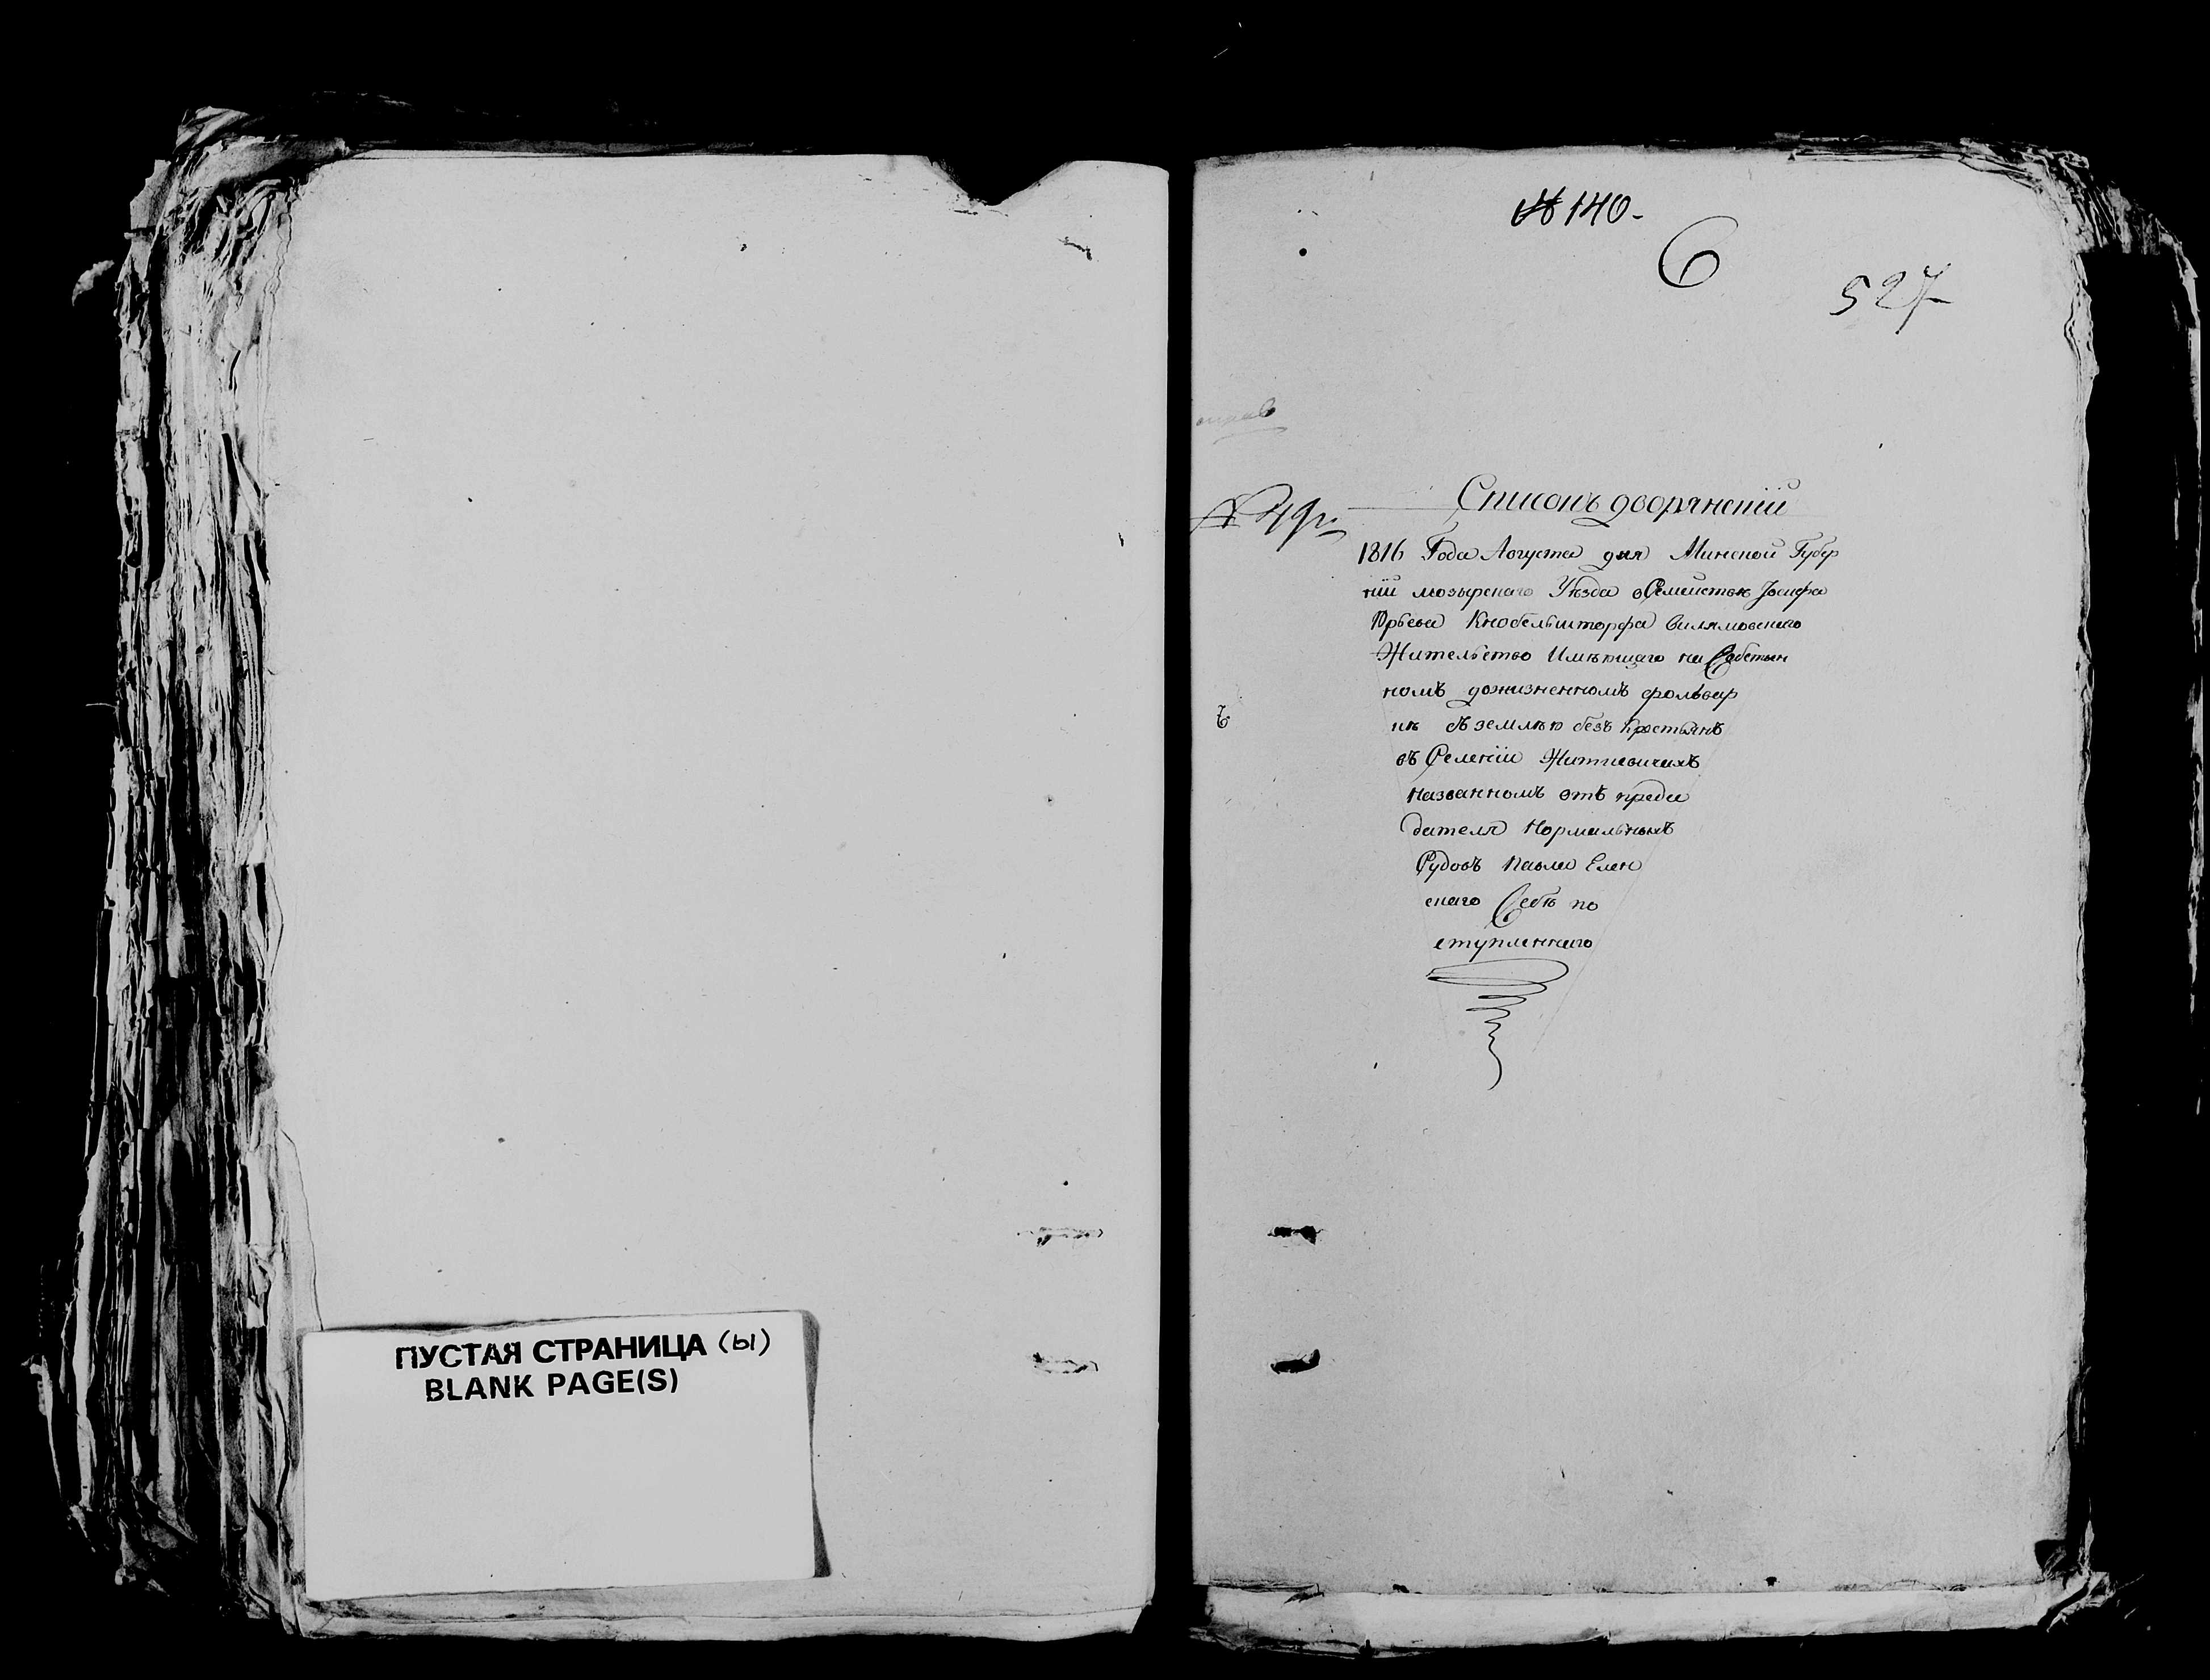 ПУСТАЯ СТРАНИЦА (ы)
BLANK PAGE(S)
№ 140.
6
527
Списокъ дворянскій
1816 Года Августа дня Минской Губер
ніи мозырскаго Уѣзда о Семействѣ Іосифа
Юрьева Кнобельшторфа Вилямовскаго
Жительство Имѣющаго на Собствен
номъ дожизненномъ фольвар
кѣ съ землѣю безъ Крестьянъ
въ Селеніи Житковичахъ
названномъ отъ предсе
дателя Нормальныхъ
Судовъ Павла Елен
скаго Себѣ по
ступленнаго